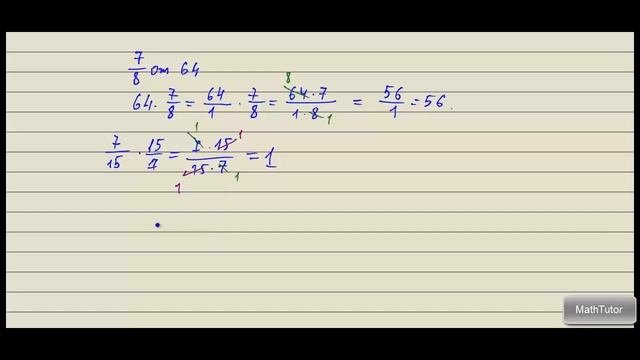 7/8 от 64
64 · 7/8 = 64/1 · 7/8 = 64 · 7/1 · 8 = 56/1 = 56.
8 1
7/15 · 15/7 = 7 · 15/15 · 7 = 1
1 1 1 1
MathTutor